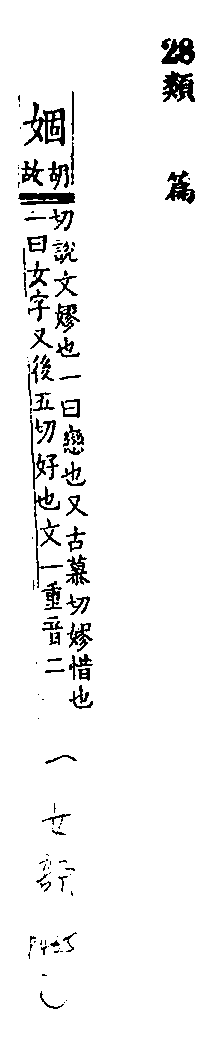 28類篇
婟胡故
切說文嫪也一曰戀也又古慕切嫪惜也
一曰女字又後五切好也文一重音二
(女部
P455)